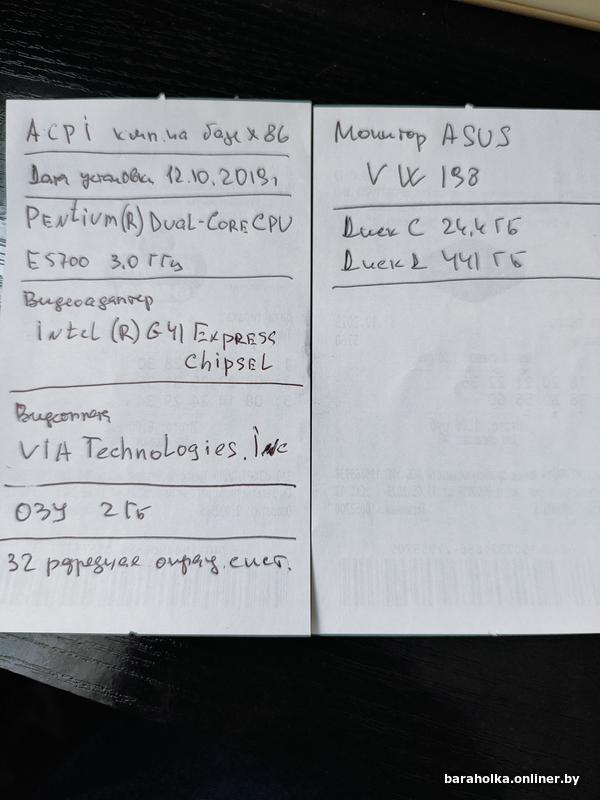 ACPi кмп. на базе x86
Дата установки 12.10.2019г
PENtium(R) DUAL-CORE CPU
E5700 3.0 ГГц
Видеоадаптер
intel (R) G41 EXPRESS
ChipSEL
VIA Technologies. Inc
ОЗУ 2 Гб
32 рдредная оирац. сист.
Монитор ASUS
VW 198
Диск C 24,4 ГБ
Диск D 441 ГБ
baraholka.onliner.by